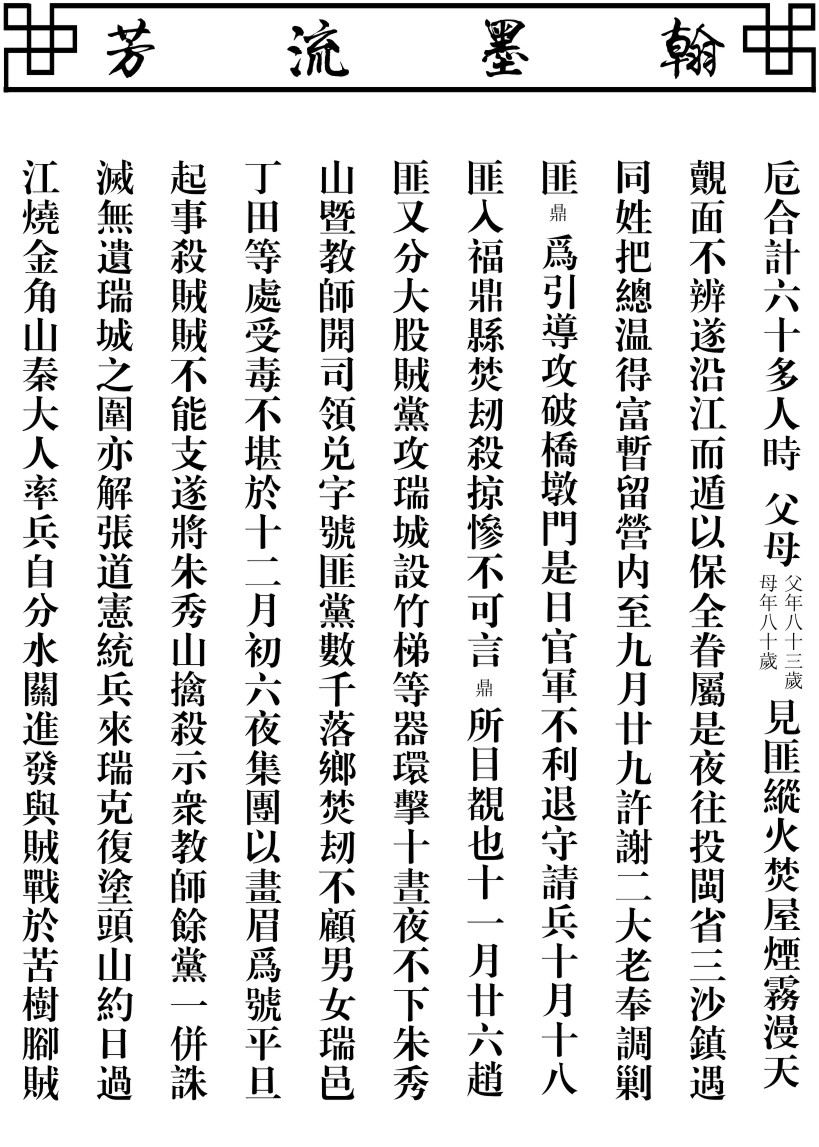 翰墨流芳
卮合計六十多人時 父母父年八十三歲母年八十歲見匪縱火焚屋煙霧漫天
覿面不辨遂沿江而遁以保全眷屬是夜往投閩省三沙鎮遇
同姓把總温得富暫留營内至九月廿九許謝二大老奉調剿
匪鼎爲引導攻破橋墩門是日官軍不利退守請兵十月十八
匪入福鼎縣焚刼殺掠慘不可言鼎所目覩也十一月廿六趙
匪又分大股賊黨攻瑞城設竹梯等器環擊十晝夜不下朱秀
山暨教師開司領兑字號匪黨數千落鄉焚刼不顧男女瑞邑
丁田等處受毒不堪於十二月初六夜集團以畫眉爲號平旦
起事殺賊賊不能支遂將朱秀山擒殺示衆教師餘黨一併誅
滅無遺瑞城之圍亦解張道憲統兵來瑞克復塗頭山約日過
江燒金角山秦大人率兵自分水關進發與賊戰於苦樹腳賊